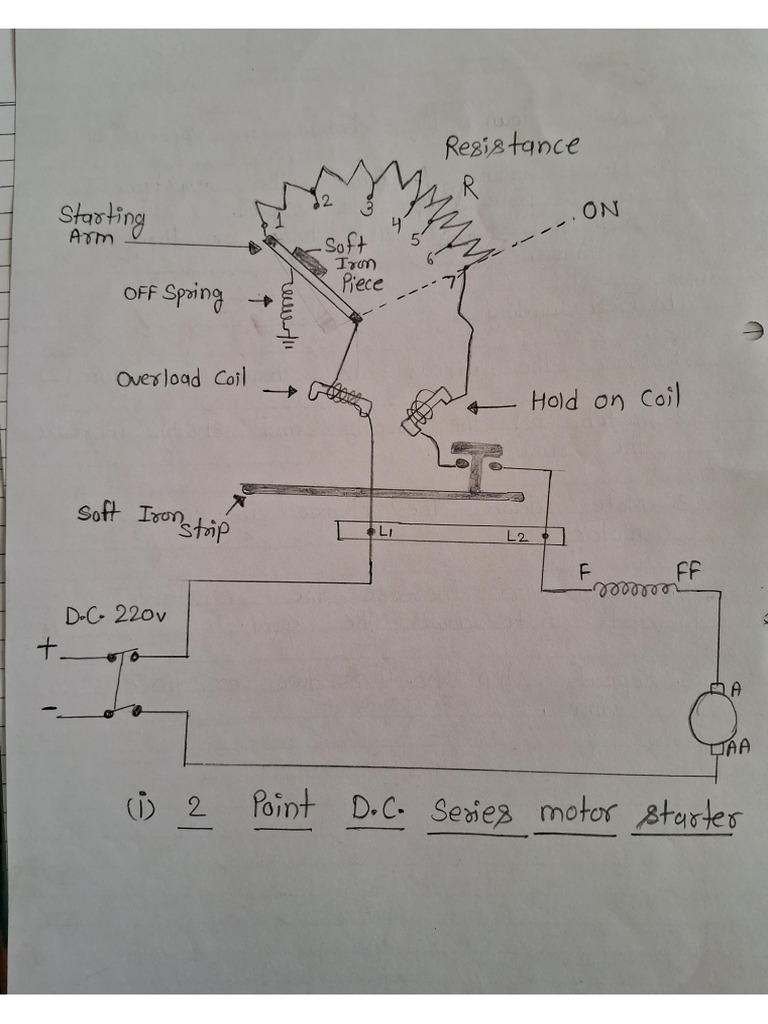 Resistance
R
ON
1
2
3
4
5
6
7
Starting
Arm
Soft
Iron
Piece
OFF Spring
Overload Coil
Hold on Coil
Soft Iron
Strip
L1
L2
F
FF
D.C. 220v
+
-
A
AA
(i) 2 Point D.C. Series motor starter